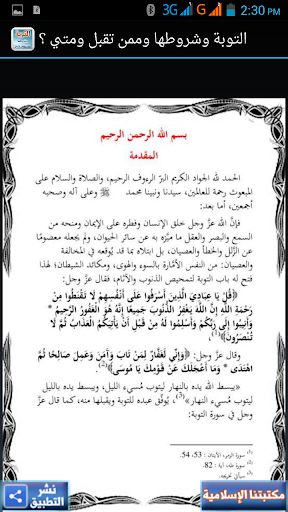 3G G 2:30 PM
التوبة وشروطها وممن تقبل ومتي ؟
بسم الله الرحمن الرحيم
المقدمة
الحمد لله الجواد الكريم البرّ الرءوف الرحيم، والصلاة والسلام على
المبعوث رحمة للعالمين، سيدنا ونبينا محمد ﷺ وعلى آله وصحبه
أجمعين، أما بعد:
فإنَّ الله عزَّ وجل خلق الإنسان وفطره على الإيمان ومنحه من
السمع والبصر والعقل ما ميَّزه به عن سائر الحيوان، ولم يجعله معصومًا
عن الزَّلل والخطأ والعصيان، بل ابتلاه بما قد يُوقعه في المخالفة
والعصيان: من النفس الأمَّارة بالسوء والهوى، ومكائد الشيطان؛ لهذا
فتح له باب التوبة لتمحيص الذنوب والآثام، فقال عزَّ وجل:
﴿قُلْ يَا عِبَادِيَ الَّذِينَ أَسْرَفُوا عَلَى أَنْفُسِهِمْ لَا تَقْنَطُوا مِنْ
رَحْمَةِ اللَّهِ إِنَّ اللَّهَ يَغْفِرُ الذُّنُوبَ جَمِيعًا إِنَّهُ هُوَ الْغَفُورُ الرَّحِيمُ *
وَأَنِيبُوا إِلَى رَبِّكُمْ وَأَسْلِمُوا لَهُ مِنْ قَبْلِ أَنْ يَأْتِيَكُمُ الْعَذَابُ ثُمَّ لَا
تُنْصَرُونَ﴾(1).
وقال عزَّ وجل: ﴿وَإِنِّي لَغَفَّارٌ لِمَنْ تَابَ وَآمَنَ وَعَمِلَ صَالِحًا ثُمَّ
اهْتَدَى * وَمَا أَعْجَلَكَ عَنْ قَوْمِكَ يَا مُوسَى﴾(2).
«يبسط الله يده بالنهار ليتوب مُسيء الليل، ويبسط يده بالليل
ليتوب مُسيء النهار»(3)، يُوفِّق عبده للتوبة ويقبلها منه، كما قال عزَّ
وجل في سورة التوبة:
(1) سورة الزمر، الآيتان : 53، 54.
(2) سورة طه، آية : 82.
(3) سيأتي تخريجه.
نشر
التطبيق
مكتبتنا الإسلامية